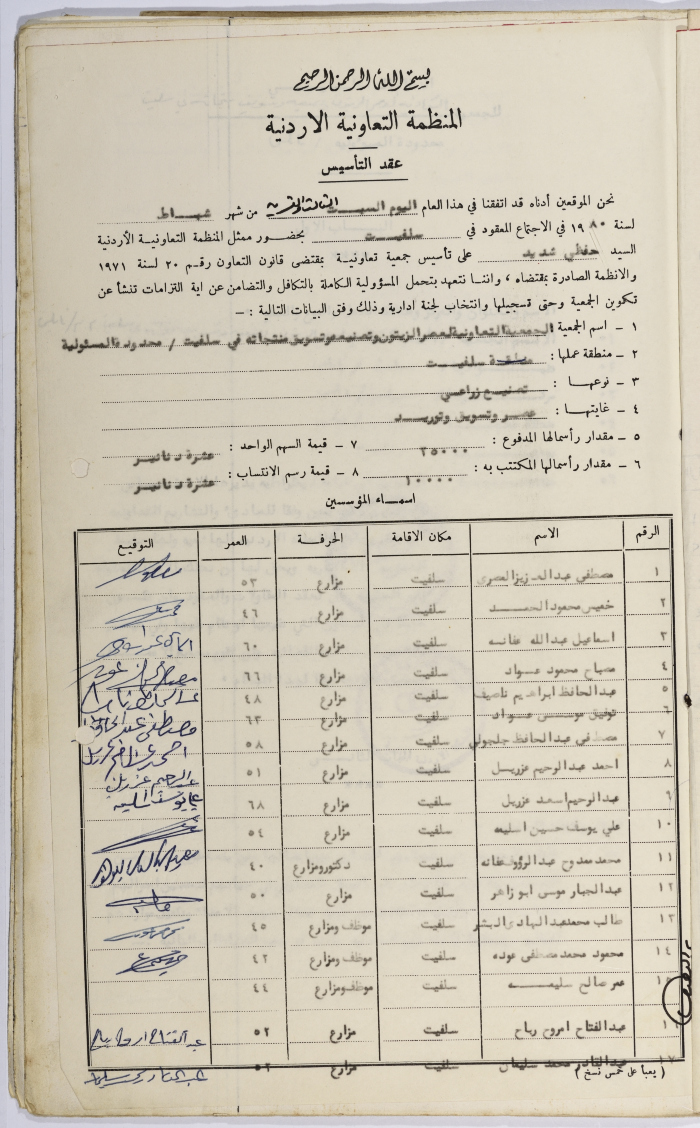 بسم الله الرحمن الرحيم
المنظمة التعاونية الاردنية
عقد التأسيس
نحن الموقعين أدناه قد اتفقنا في هذا العام اليوم السبت الثالث والعشرين من شهر شباط
لسنة ١٩٨٠ في الاجتماع المعقود في سلفيت بحضور ممثل المنظمة التعاونية الأردنية
السيد حفظي شديد على تأسيس جمعية تعاونية بمقتضى قانون التعاون رقم ٢٠ لسنة ١٩٧١
والانظمة الصادرة بمقتضاه ، واننا نتعهد بتحمل المسؤولية الكاملة بالتكافل والتضامن عن اية التزامات تنشأ عن
تكوين الجمعية وحتى تسجيلها وانتخاب لجنة ادارية وذلك وفق البيانات التالية : –
١ – اسم الجمعية : الجمعية التعاونية لعصر الزيتون وتصنيع وتسويق منتجاته في سلفيت / محدودة المسئولية
٢ – منطقة عملها : منطقة سلفيت
٣ – نوعها : تصنيع زراعي
٤ – غايتها : عصر وتسويق وتوريد
٥ – مقدار رأسمالها المدفوع : ٢٥٠٠٠ ٧ – قيمة السهم الواحد : عشرة دنانير
٦ – مقدار رأسمالها المكتتب به : ١٠٠٠٠ ٨ – قيمة رسم الانتساب : عشرة دنانير
اسماء المؤسسين
الرقم الاسم مكان الاقامة الحرفة العمر التوقيع
١ مصطفى عبد العزيز المصري سلفيت مزارع ٥٣
٢ خميس محمود الحمد سلفيت مزارع ٤٦
٣ اسماعيل عبدالله عفانه سلفيت مزارع ٦٠
٤ مصباح محمود عواد سلفيت مزارع ٦٦
٥ عبدالحافظ ابراهيم ناصيف سلفيت مزارع ٤٨
٦ توفيق موسى عواد سلفيت مزارع ٦٣
٧ مصطفى عبدالحافظ جلجولي سلفيت مزارع ٥٨
٨ احمد عبدالرحيم عزريل سلفيت مزارع ٥١
٩ عبدالرحيم اسعد عزريل سلفيت مزارع ٦٨
١٠ علي يوسف حسين اسليمه سلفيت مزارع ٥٤
١١ محمد ممدوح عبدالرؤوف عفانه سلفيت دكتور ومزارع ٤٠
١٢ عبدالجبار موسى ابو زاهر سلفيت مزارع ٥٠
١٣ طالب محمد عبدالهادي البشر سلفيت موظف ومزارع ٤٥
١٤ محمود محمد مصطفى عوده سلفيت موظف ومزارع ٤٢
١٥ عمر صالح سليمه سلفيت موظف ومزارع ٤٤
١٦ عبدالفتاح امروح رباح سلفيت مزارع ٥٢
١٧ عبدالقادر محمد سليمان سلفيت مزارع ٥٢
( يعبأ على خمس نسخ )